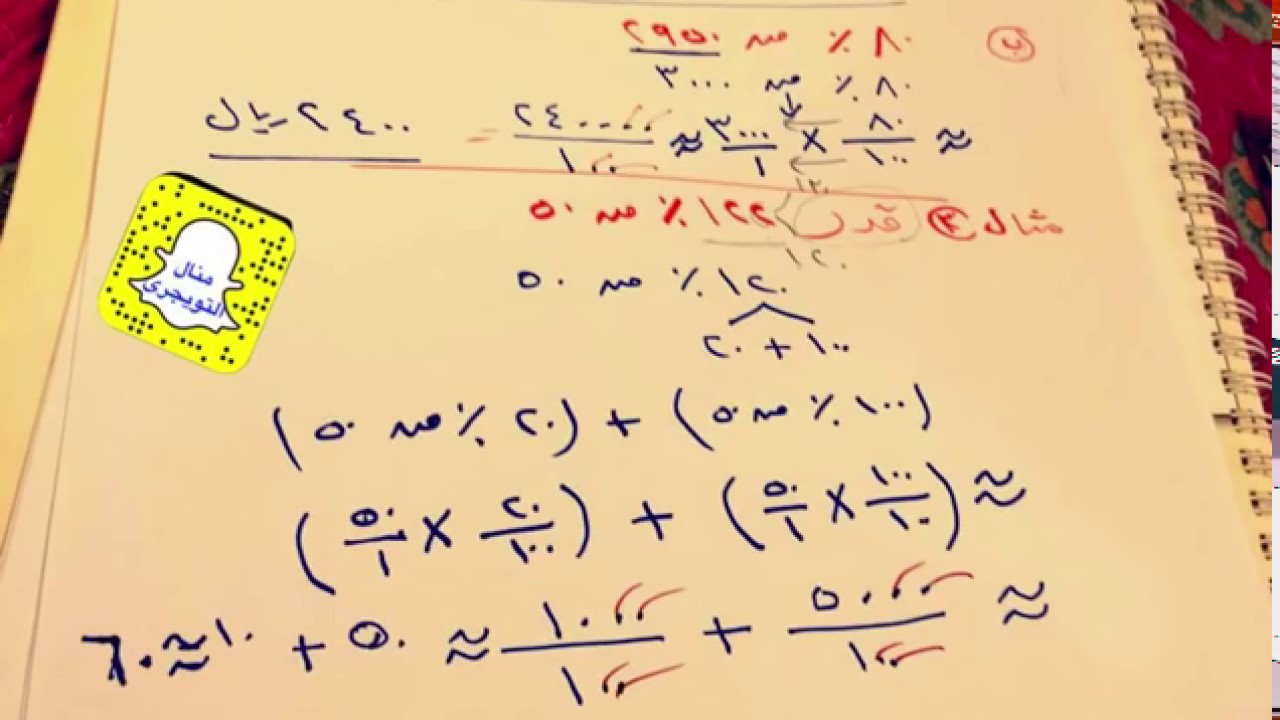 ب) ٨٠ ٪ من ٢٩٥٠
٨٠ ٪ من ٣٠٠٠
≈ ٨٠/١٠٠ × ٣٠٠٠/١ ≈ ٢٤٠٠٠٠/١٠٠ = ٢٤٠٠ ريال
مثال ٣) قدر ١٢٢ ٪ من ٥٠
١٢٠
١٢٠
١٢٠ ٪ من ٥٠
١٠٠ + ٢٠
(١٠٠ ٪ من ٥٠) + (٢٠ ٪ من ٥٠)
≈ (١٠٠/١٠٠ × ٥٠/١) + (٢٠/١٠٠ × ٥٠/١)
≈ ٥٠٠٠/١٠٠ + ١٠٠٠/١٠٠ ≈ ٥٠ + ١٠ ≈ ٦٠
منال
التويجري